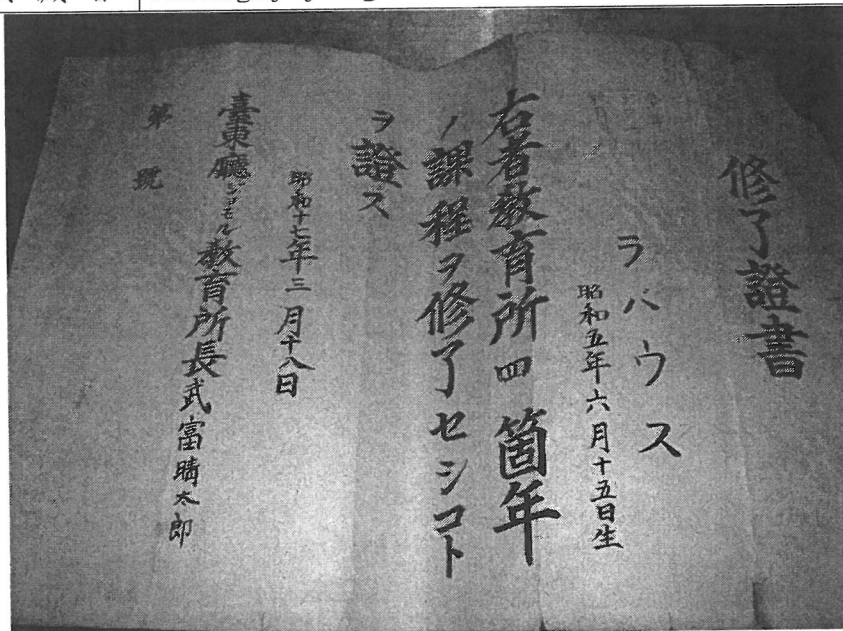 修了證書
ラハウス
昭和五年六月十五日生
右者教育所四箇年
ノ課程ヲ修了セシコト
ヲ證ス
昭和十七年三月十八日
臺東廳 教育所長武富晴太郎
第 號